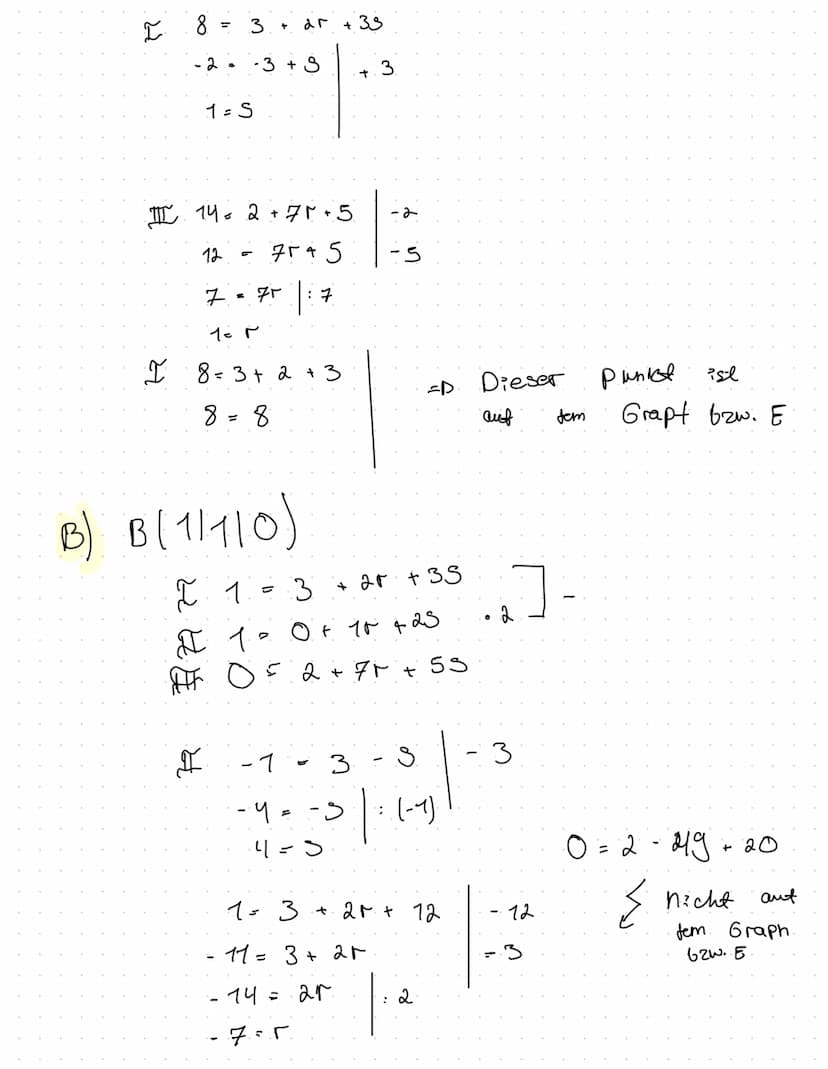 I 8 = 3 + 2r + 3s
-2 = -3 + s | + 3
1 = s
III 14 = 2 + 7r + 5 | -2
12 = 7r + 5 | -5
7 = 7r | : 7
1 = r
I 8 = 3 + 2 + 3
8 = 8
=D Dieser Punkt ist
auf dem Grapf bzw. E
B) B(1|1|0)
I 1 = 3 + 2r + 3s
II 1 = 0 + 1r + 2s · 2 ] -
III 0 = 2 + 7r + 5s
II -1 = 3 - s | - 3
-4 = -s | : (-1)
4 = s
1 = 3 + 2r + 12 | - 12
-11 = 3 + 2r | - 3
-14 = 2r | : 2
-7 = r
0 = 2 - 49 + 20
nicht auf
dem Graph
bzw. E